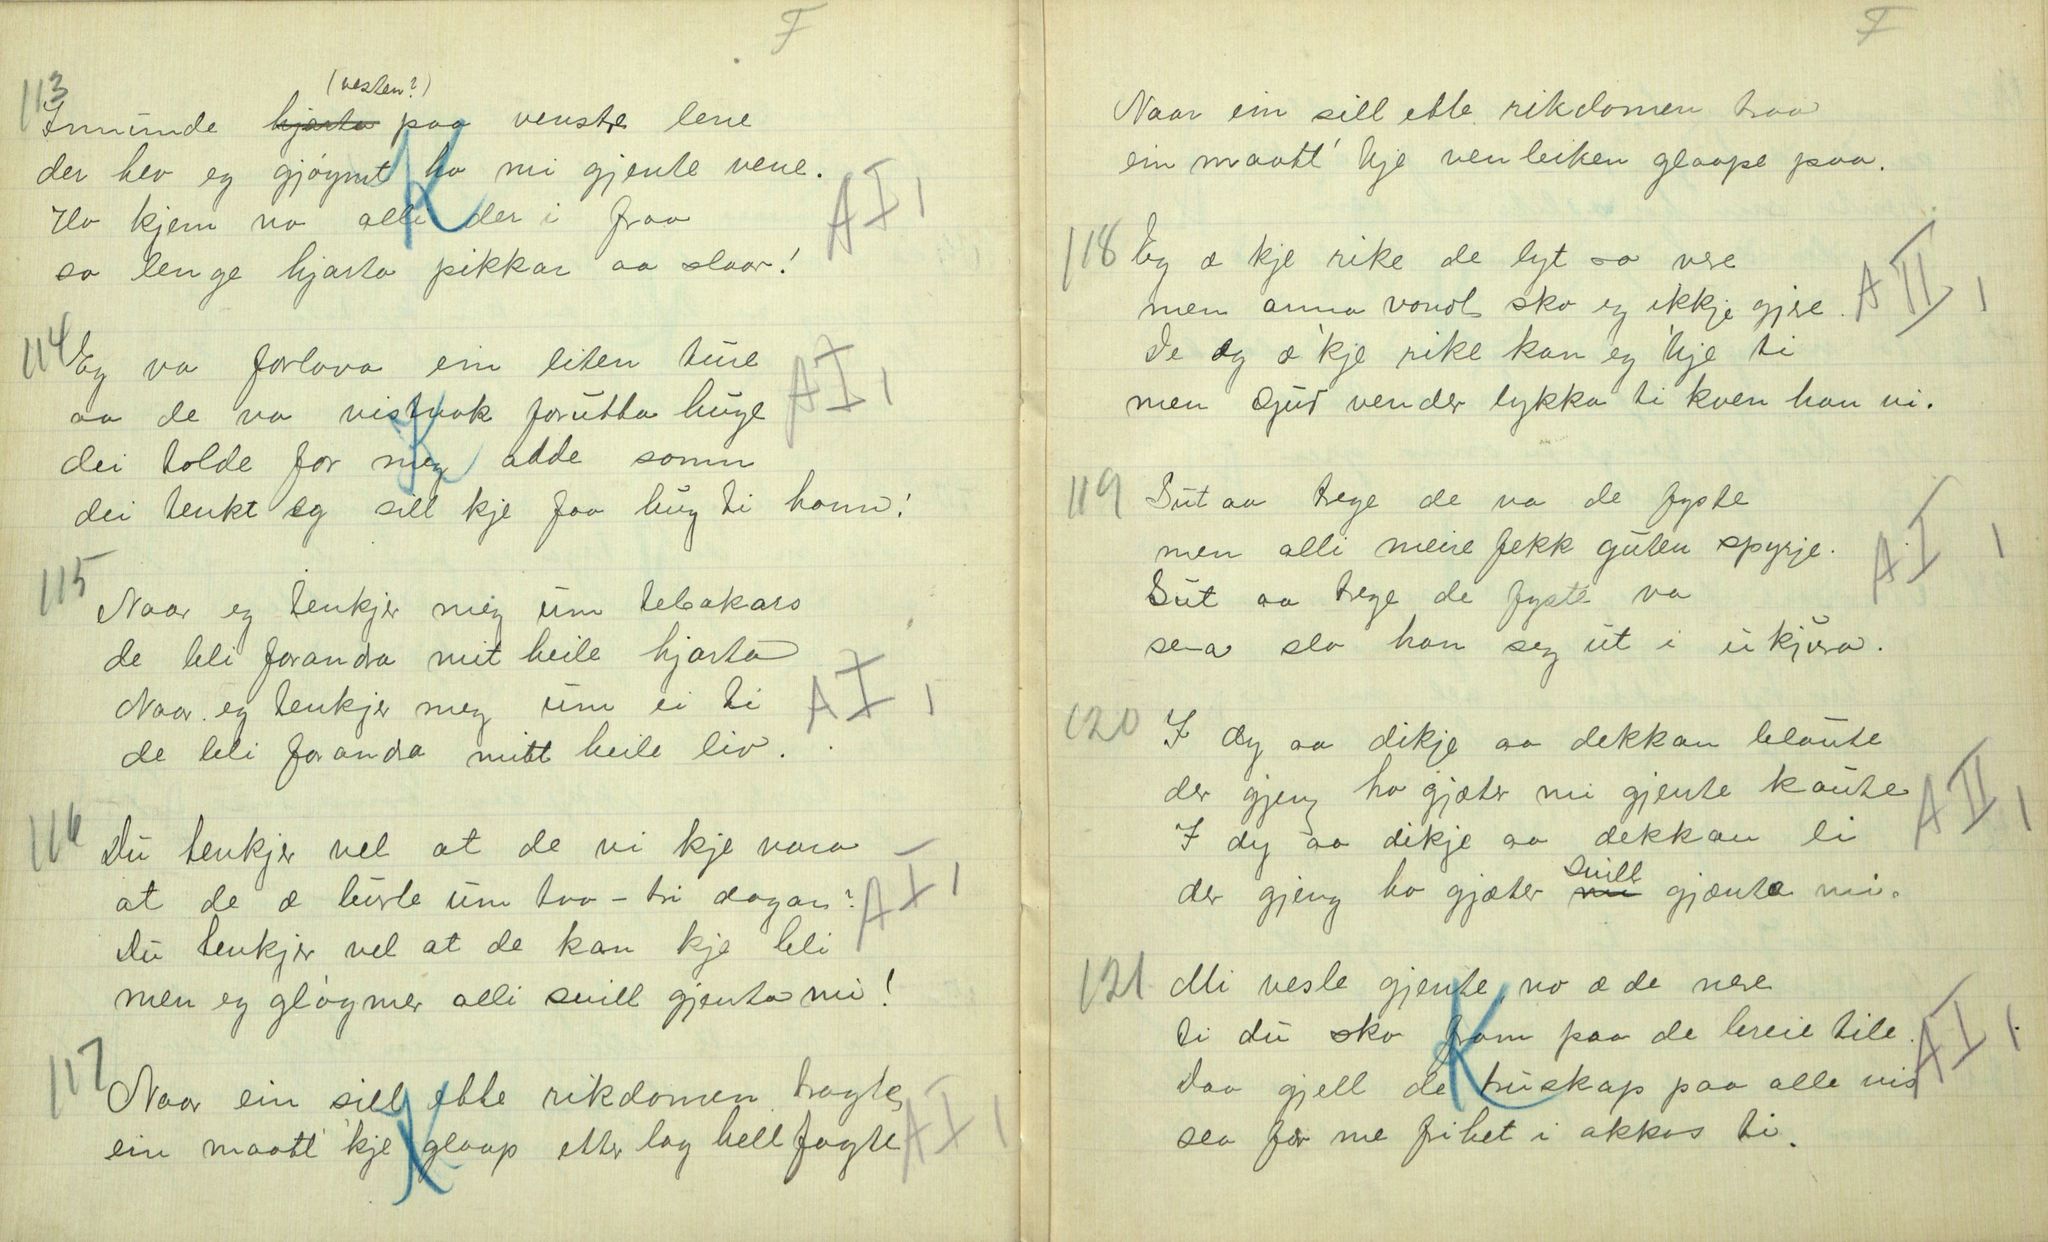 F
113
(vesten?)
Innunde hjarta paa venstre lene
der hev eg gjöymt ho mi gjente vene.
Ho kjem no alli der i fraa
so lenge hjarta pikkar aa slaar!
AI,
K
114
Eg va forlova ein liten türe
aa de va visst nok forutta hüge
dei tolde for meg adde somn
dei tenkt eg sill kje faa hüg ti honn!
AI,
K
115
Naar eg tenkjer meg üm tebakars
de bli forandra mit heile hjarta
Naar eg tenkjer meg üm ei ti
de bli forandra mitt heile liv.
AI,
116
Dü tenkjer vel at de vi kje vara
at de æ bürte üm tvo-tri dagan?
Dü tenkjer vel at de kan kje bli
men eg glöymer alli snill gjenta mi!
AI,
117
Naar ein sill ette rikdomen tragte
ein maatt' kje glaap etter lag hell fagte
AI,
K
F
Naar ein sill ette rikdomen traa
ein maatt' kje venleiken glaape paa.
118
Eg æ kje rike de lyt so vere
men anna vondt sko eg ikkje gjere.
De eg æ 'kje rike kan eg 'kje ti
men Gud vender lykka ti kven han vi.
AII,
119
Süt aa trege de va de fyste
men alli meire fekk güten spyrje.
Süt aa trege de fyste va
sea slo han seg üt i ükjura.
AI,
120
I dy aa dikje aa dekkan blaüte
der gjeng ho gjæter mi gjente kaüte
I dy aa dikje aa dekkan li
snill
der gjeng ho gjæter mi gjænta mi.
AII,
121
Mi vesle gjente, no æ de nere
ti dü sko fram paa de breie tile.
Daa gjell de truskap paa alle vis
sea før me frihet i akkos ti.
AI,
K